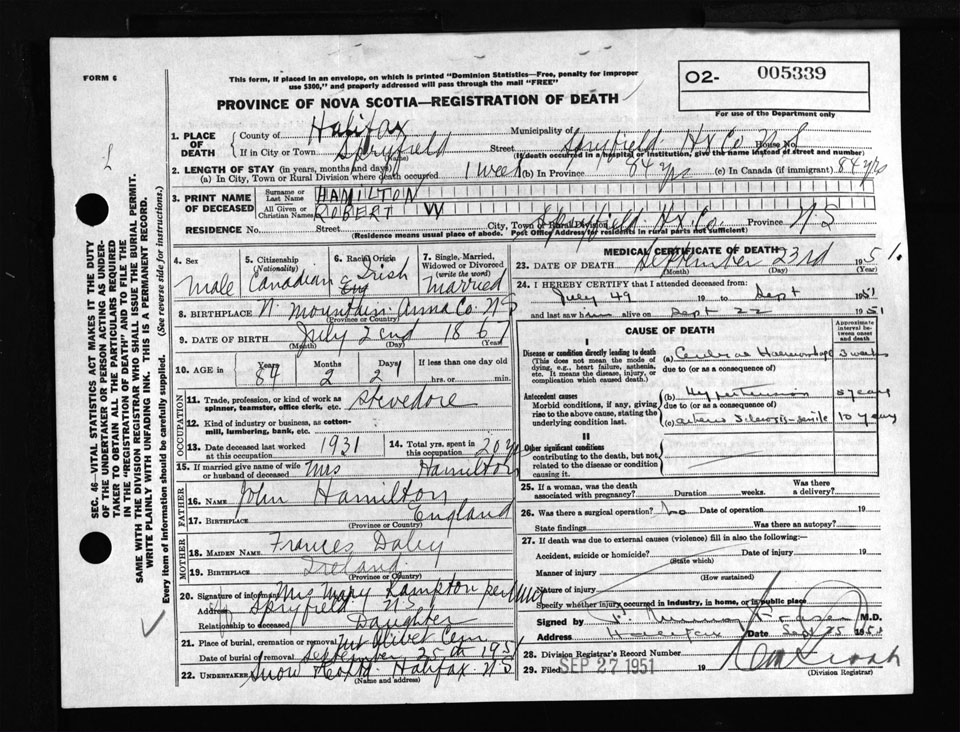 FORM 6
This form, if placed in an envelope, on which is printed "Dominion Statistics—Free, penalty for improper
use $300," and properly addressed will pass through the mail "FREE"
O2- 005339
For use of the Department only
PROVINCE OF NOVA SCOTIA—REGISTRATION OF DEATH
1. PLACE OF DEATH
County of Halifax Municipality of
If in City or Town Spryfield Street Spryfield Hx Co N S House No.
(Name) (If death occurred in a hospital or institution, give the name instead of street and number)
2. LENGTH OF STAY (in years, months and days)
(a) In City, Town or Rural Division where death occurred 1 week (b) In Province 84 yrs (c) In Canada (if immigrant) 84 yrs
3. PRINT NAME OF DECEASED
Surname or Last Name HAMILTON
All Given or Christian Names ROBERT W
RESIDENCE No. Street City, Town or Rural Division Spryfield Hx Co. Province N S
(Residence means usual place of abode. Post Office Address for residents in rural parts not sufficient)
4. Sex Male
5. Citizenship (Nationality) Canadian
6. Racial Origin Irish Eng
7. Single, Married, Widowed or Divorced (write the word) Married
8. BIRTHPLACE N. Mountain Anna Co. N S
(Province or Country)
9. DATE OF BIRTH July 22nd 1867
(Month) (Day) (Year)
10. AGE in Years 84 Months 2 Days 2 If less than one day old
hrs. or min.
OCCUPATION
11. Trade, profession, or kind of work as spinner, teamster, office clerk, etc. Stevedore
12. Kind of industry or business, as cotton-mill, lumbering, bank, etc.
13. Date deceased last worked at this occupation 1931
14. Total yrs. spent in this occupation 20 yrs
15. If married give name of wife or husband of deceased Mrs Hamilton
FATHER
16. NAME John Hamilton
17. BIRTHPLACE England
(Province or Country)
MOTHER
18. MAIDEN NAME Frances Daley
19. BIRTHPLACE Ireland
(Province or Country)
20. Signature of informant Mrs Mary Hampton per
Address Spryfield N S
Relationship to deceased Daughter
21. Place of burial, cremation or removal Mt Olivet Cem
Date of burial or removal September 25th 1951
22. UNDERTAKER Snow Halifax N S
(Name and address)
MEDICAL CERTIFICATE OF DEATH
23. DATE OF DEATH September 23rd 1951.
(Month) (Day) (Year)
24. I HEREBY CERTIFY that I attended deceased from:
July 49 19 to Sept 1951
and last saw him alive on Sept 22 1951
CAUSE OF DEATH
Approximate interval between onset and death
I
Disease or condition directly leading to death
(This does not mean the mode of dying, e.g., heart failure, asthenia, etc. It means the disease, injury, or complication which caused death.)
(a) Cerebral Haemorrhage 3 weeks
due to (or as a consequence of)
Antecedent causes
Morbid conditions, if any, giving rise to the above cause, stating the underlying condition last.
(b) Hypertension 5 years
due to (or as a consequence of)
(c) Arterio Sclerosis - Senile 10 years
II
Other significant conditions
contributing to the death, but not related to the disease or condition causing it.
25. If a woman, was the death associated with pregnancy? Duration weeks. Was there a delivery?
26. Was there a surgical operation? No Date of operation 19
State findings Was there an autopsy?
27. If death was due to external causes (violence) fill in also the following:
Accident, suicide or homicide? Date of injury 19
(State which)
Manner of injury
(How sustained)
Nature of injury
Specify whether injury occurred in industry, in home, or in public place
Signed by M.D.
Address Halifax Date Sept 25 1951
28. Division Registrar's Record Number
29. Filed SEP 27 1951 19
(Division Registrar)
SEC. 46—VITAL STATISTICS ACT MAKES IT THE DUTY
OF THE UNDERTAKER OR PERSON ACTING AS UNDER-
TAKER TO OBTAIN ALL THE PARTICULARS REQUIRED
IN THE "REGISTRATION OF DEATH" AND TO FILE THE
SAME WITH THE DIVISION REGISTRAR WHO SHALL ISSUE THE BURIAL PERMIT.
WRITE PLAINLY WITH UNFADING INK. THIS IS A PERMANENT RECORD.
Every item of information should be carefully supplied. (See reverse side for instructions.)